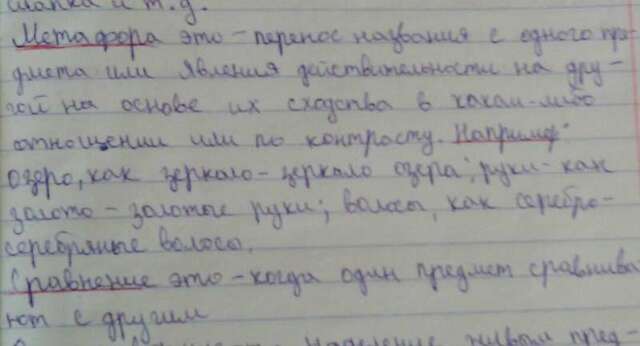 шапка и т.д.
Метафора это – перенос названия с одного пре-
дмета или явления действительности на дру-
гой на основе их сходства в каком-либо
отношении или по контрасту. Например:
озеро, как зеркало – зеркало озера; руки – как
золото – золотые руки; волосы, как серебро –
серебряные волосы.
Сравнение это – когда один предмет сравнива
ют с другим
наделение живым пред-